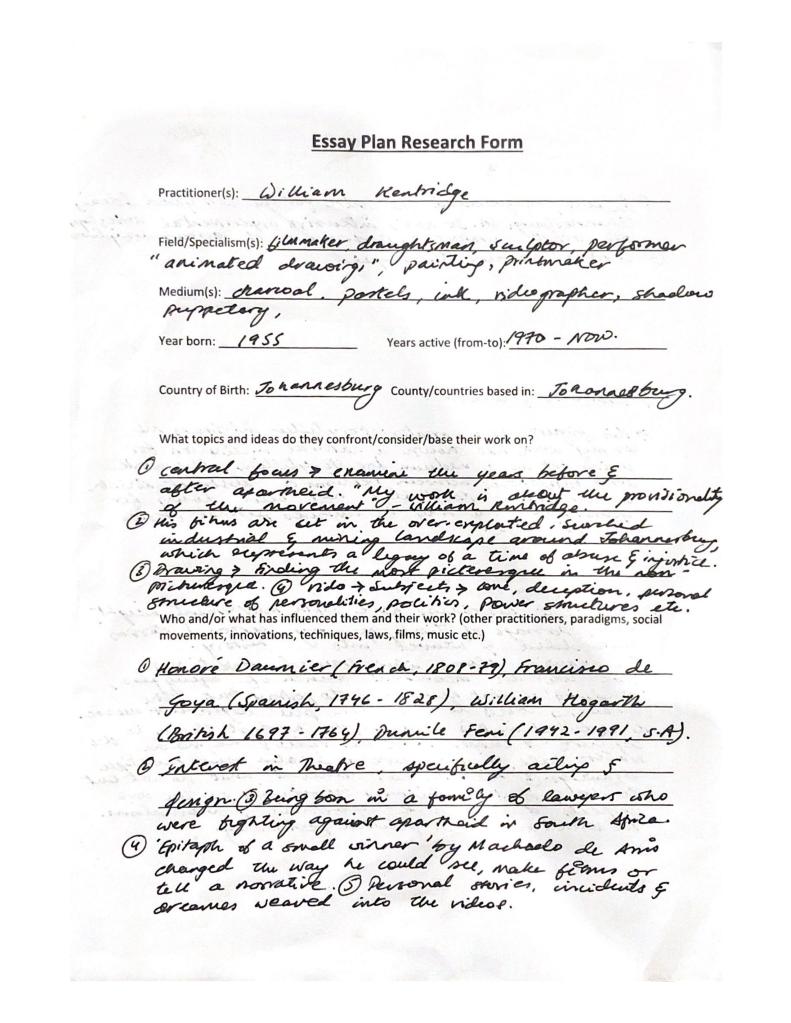 Essay Plan Research Form
Practitioner(s): William Kentridge
Field/Specialism(s): filmmaker, draughtsman, sculptor, performer
"animated drawings", painting, printmaker
Medium(s): charcoal, pastels, ink, videographer, shadow
puppetory,
Year born: 1955 Years active (from-to): 1970 - NOW.
Country of Birth: Johannesburg County/countries based in: Johannesburg.
What topics and ideas do they confront/consider/base their work on?
① central focus → examine the years before &
after apartheid. "My work is about the provisionality
of the movement" - William Kentridge.
② His films are set in the over-exploited, scorched
industrial & mining landscape around Johannesburg,
which represents a legacy of a time of abuse & injustice.
③ Drawing → finding the most picteresque in the non-
picturesque. ④ vido → subjects → love, deception, personal
structure of personalities, politics, power structures etc.
Who and/or what has influenced them and their work? (other practitioners, paradigms, social
movements, innovations, techniques, laws, films, music etc.)
① Honoré Daumier (French, 1808-79), Francisco de
Goya (Spanish, 1746 - 1828), William Hogarth
(British 1697 - 1764), Dumile Feni (1942 - 1991, S.A).
② Interest in Theatre, specifically acting &
design. ③ Being born in a family of lawyers who
were fighting against apartheid in South Africa.
④ 'Epitaph of a small winner' by Machado de Assis
changed the way he could see, make films or
tell a narrative. ⑤ Personal stories, incidents &
dreames weaved into the videos.